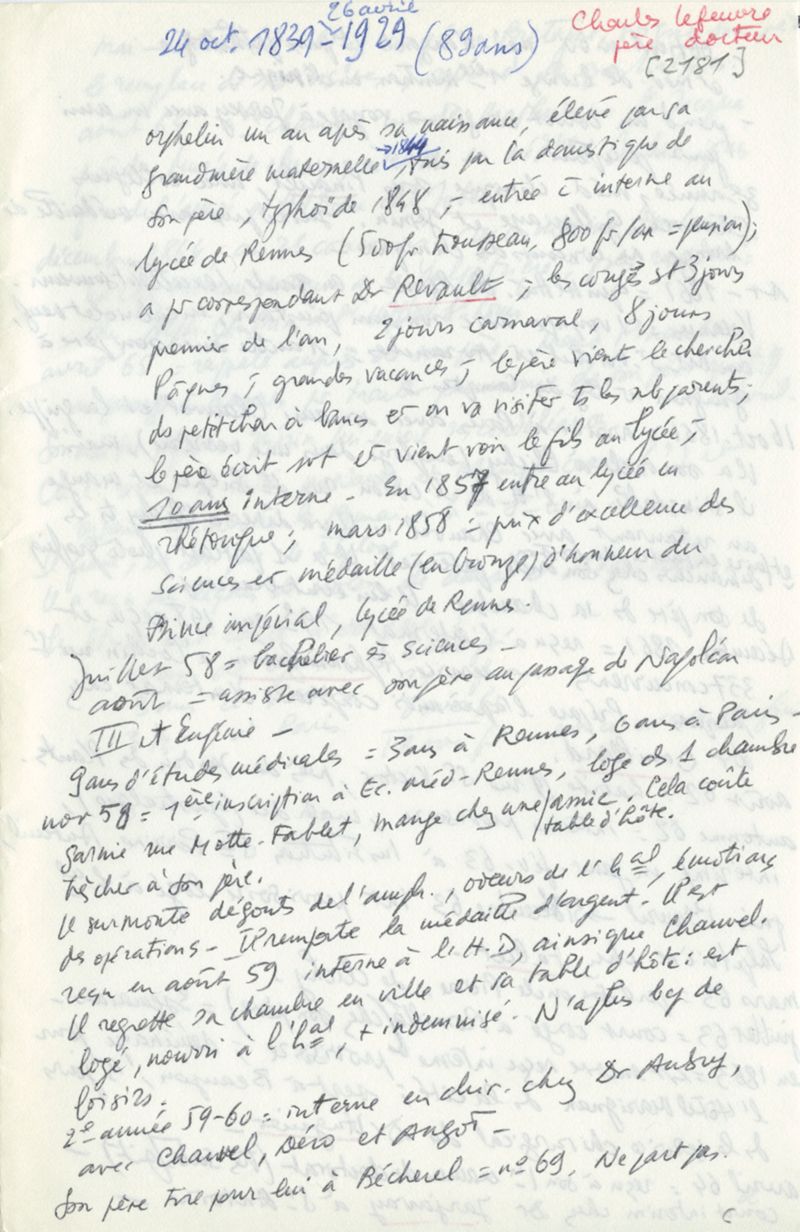 26 avril
24 oct. 1839 - 1929 (89ans)
Charles Lefeuvre
père docteur
[2181]
orphelin un an après sa naissance, élevé par sa
grand'mère maternelle →1844, puis par la domestique de
son père, typhoïde 1848, - entrée c interne au
lycée de Rennes (500fr trousseau, 800fr/an = pension);
a pr correspondant Dr Revault; les congés st 3 jours
premier de l'an, 2 jours carnaval, 8 jours
Pâques; grandes vacances; le père vient le chercher
ds petit char à bancs et on va visiter ts les nbx parents;
le père écrit svt et vient voir le fils au lycée;
10 ans interne - En 1857 entre au lycée en
rhétorique; mars 1858 = prix d'excellence des
sciences et médaille (en bronze) d'honneur du
Prince impérial, lycée de Rennes.
Juillet 58 = bachelier ès sciences -
août = assiste avec son père au passage de Napoléon
III et Eugénie -
9 ans d'études médicales = 3 ans à Rennes, 6 ans à Paris -
nov 58 = 1ère inscription à Ec. méd-Rennes, loge ds 1 chambre
garnie rue Motte-Fablet, mange chez une amie. Cela coûte
/table d'hôte.
très cher à son père.
Il surmonte dégoûts de l'amph., odeurs de l'hal, émotions
des opérations - Il remporte la médaille d'argent - Il est
reçu en août 59 interne à l'H.D, ainsi que Chauvel.
Il regrette sa chambre en ville et sa table d'hôte: est
logé, nourri à l'hal, + indemnisé. N'a plus bcp de
loisirs.
2e année 59-60 = interne en chir. chez Dr Aubry,
avec Chauvel, Déro et Angot -
Son père tire pour lui à Bécherel = n° 69. Ne part pas.